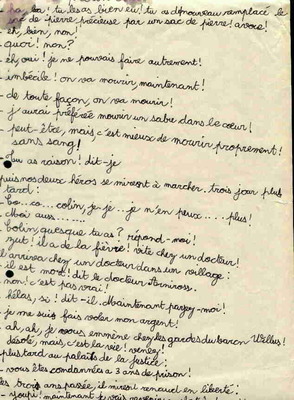 ha, ha! tu l'as bien eu! tu as de nouveau remplacé le
sac de pierre précieuse par un sac de pierre! avoue!
- eh, bien, non!
- quoi! non?
- eh, oui! je ne pouvais faire autrement!
- imbécile! on va mourir, maintenant!
- de toute façon, on va mourir!
- j'aurai préféré mourir un sabre dans le cœur!
- peut-être, mais, c'est mieux de mourir proprement!
sans sang!
- tu as raison! dit-je
puis nos deux héros se mirent à marcher. trois jour plus
tard:
- bo... co... colin, je-je... je n'en peux..... plus!
- Moi aussi.......
- bolin, quesque tu as? répond-moi!
- zut! il a de la fièvre! vite chez un docteur!
il arriva chez un docteur dans un village:
- il est mort! dit le docteur
- non! c'est pas vrai!
- hélas, si! dit-il. Maintenant payez-moi!
- je me suis fais voler mon argent!
- ah, ah, je vous emmène chez les gardes du baron
désolé, mais, c'est la vie! venez!
plus tard au palais de la justice:
- vous êtes condannée a 3 ans de prison!
les trois ans passée, il mirent renaud en liberté:
- youpi! maintenant je vais